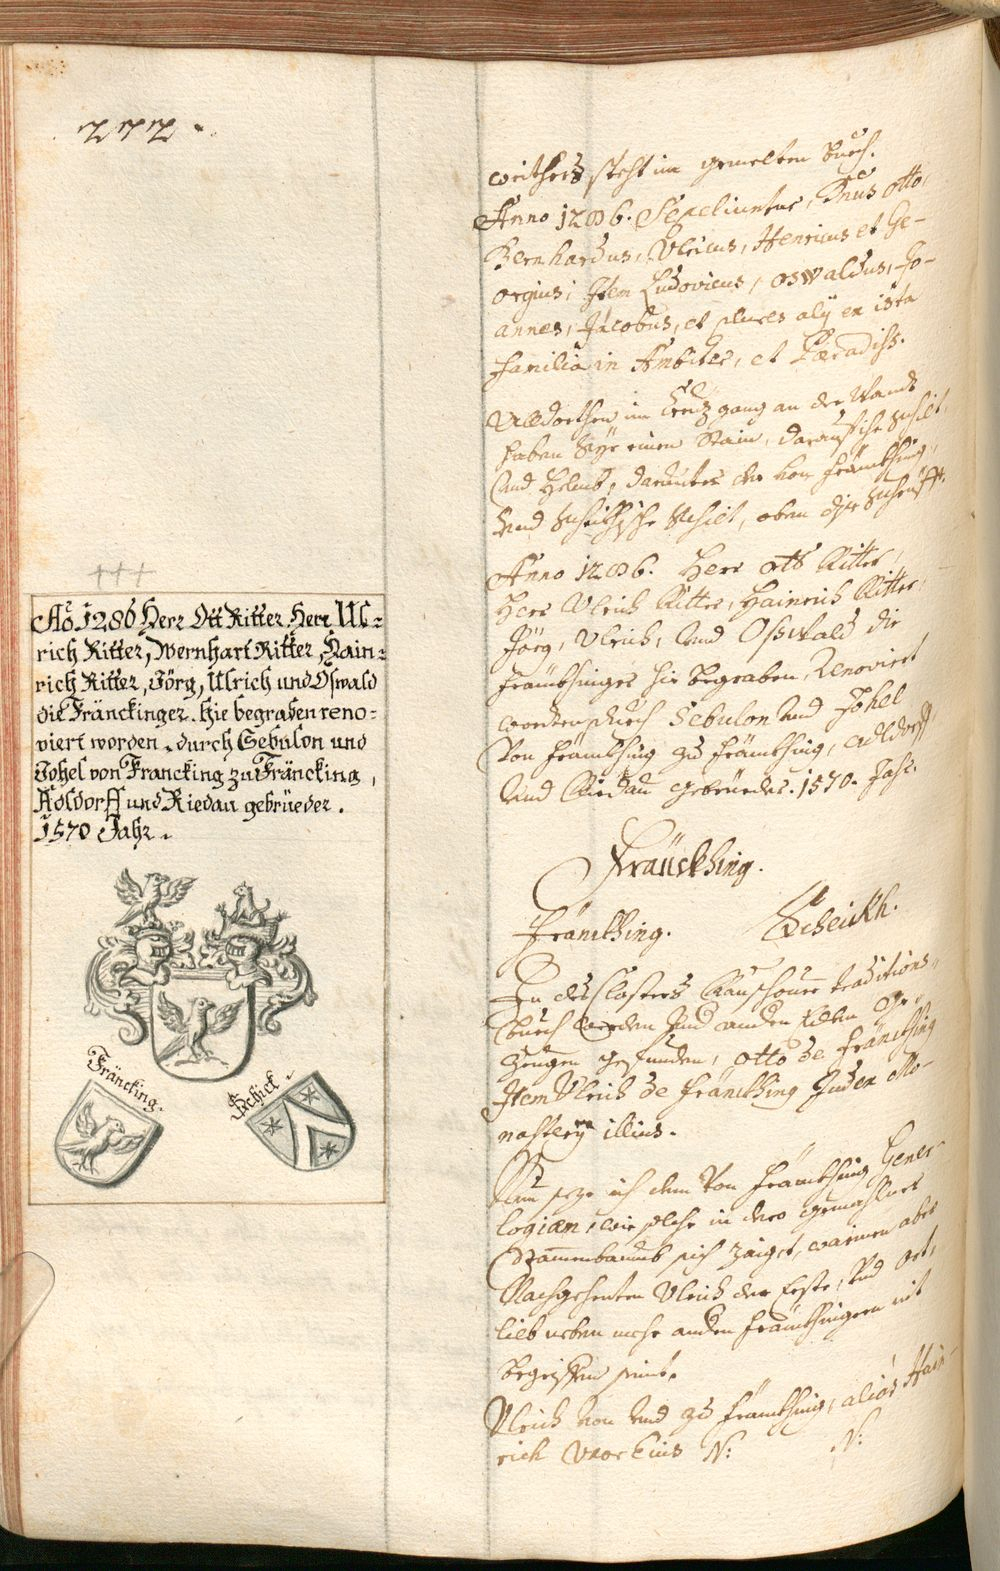 272.
Aõ 1286 Herr Ott Ritter. Herr Ul=
rich Ritter, Wernhart Ritter, Hain=
rich Ritter, Jörg, Ulrich und Oswald
die Fränckinger. Hie begraben reno=
viert worden. durch Sebulon und
Johel von Francking zu Fräncking,
Adldorff und Riedau gebrüeder.
1570 Jahr.
Fräncking.
Schick.
steht im gemelten Buech.
Anno 1286. Sepeliuntur, Dnus Otto,
Bernhardus, Ulricus, Henricus et Ge-
orgius; Item Ludovicus, Oswaldus, Jo-
annes, Jacobus, et plures alij ex ista
familia in Ambitu, et Paradiss.
Alldorthen im Creuzgang an der Wandt
haben Sye einen Stain, darauf ihr Schilt,
und Helmb, darunter der von Fränckhing,
und Schilt, oben dise Schrifft.
Anno 1286. Herr Ott Ritter,
Herr Ulrich Ritter, Hainrich Ritter,
Jörg, Ulrich, und Osswald die
Fränckhinger hie begraben, Renoviert
worden durch Sebulon und Johel
Von Fränckhing zu Fränckhing, Adldorff,
und Riedau gebrüeder. 1570. Jahr.
Fränckhing.
Fränckhing. Scheickh.
In des Closters Ranshouen traditions-
Buech werden und anden
Zeugen gefunden, Otto de Fränckhing
Item Ulrich de Fränckhing Iudex Mo-
nasterij illius.
Nun seze ich dem Von Fränckhing Genea-
logiam, wie solche in dero gemachten
Stammenbaumb sich zaiget, warinen aber
Nachgesezten Ulrich der Erste, und Ort-
lieb neben mehr andern Fränckhingern nit
begriffen seint.
Ulrich von und zu Fränckhing, aliàs Hain-
rich Uxor Eius N: N: